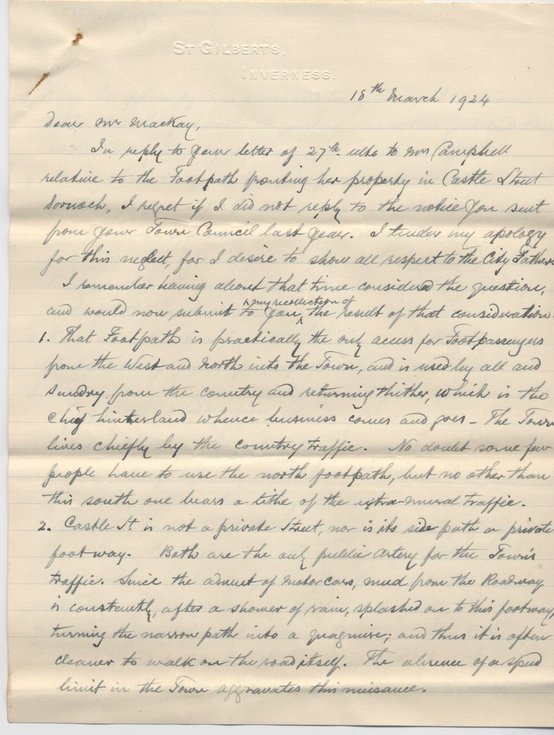 ST GILBERTS,
INVERNESS.
18th March 1924
Dear Mr Mackay,
In reply to your letter of 27th ulto to Mrs Campbell
relative to the Footpath fronting her property in Castle Street
Dornoch, I regret if I did not reply to the notice you sent
from your Town Council last year. I tender my apology
for this neglect, for I desire to show all respect to the City Fathers
I remember having about that time considered the question,
and would now submit to you, my recollection of the result of that consideration.
1. That Footpath is practically the only access for Footpassengers
from the West and North into the Town, and is used by all and
sundry from the country and returning thither, which is the
chief hinterland whence business comes and goes - The Town
lives chiefly by the country traffic. No doubt some few
people have to use the north footpath, but no other than
this south one bears a tithe of the extra-mural traffic.
2. Castle St is not a private Street, nor is its side path a private
footway. Both are the only public artery for the Town's
traffic. Since the advent of Motor cars, mud from the Roadway
is constantly, after a shower of rain, splashed on to this footway,
turning the narrow path into a quagmire; and thus it is often
cleaner to walk on the road itself. The absence of a speed
limit in the Town aggravates this nuisance.